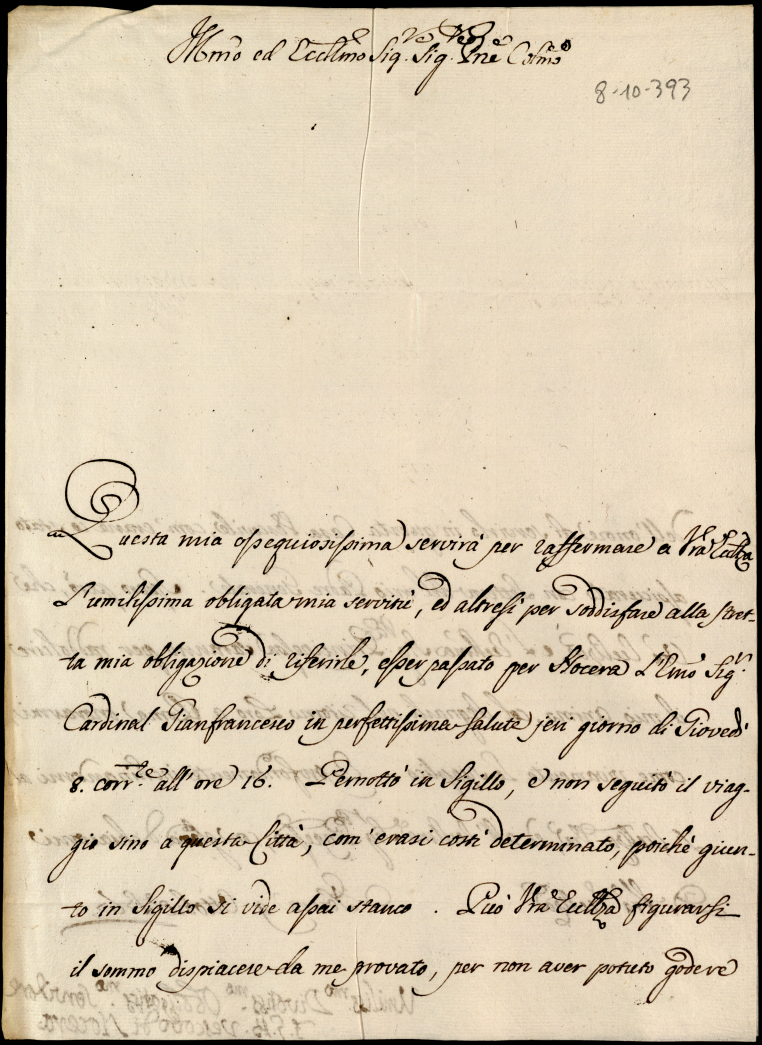 Illmo ed Eccellmo Sigre Sigre Pne Colmo
8-10-393
Questa mia ossequiosissima servirà per raffermare a Vra Eccllza
l'umilissima obligata mia servitù, ed altresì per soddisfare alla stret-
ta mia obligazione di riferirle, esser passato per Nocera l'Emo Sigr
Cardinal Gianfrancesco in perfettissima salute jeri giorno di Giovedì
8. corrte all'ore 16. Pernottò in Sigillo, e non seguitò il viag-
gio sino a questa Città, com'erasi costì determinato, poichè giun-
to in Sigillo si vide assai stanco. Può Vra Eccllza figurarsi
il sommo dispiacere da me provato, per non aver potuto godere